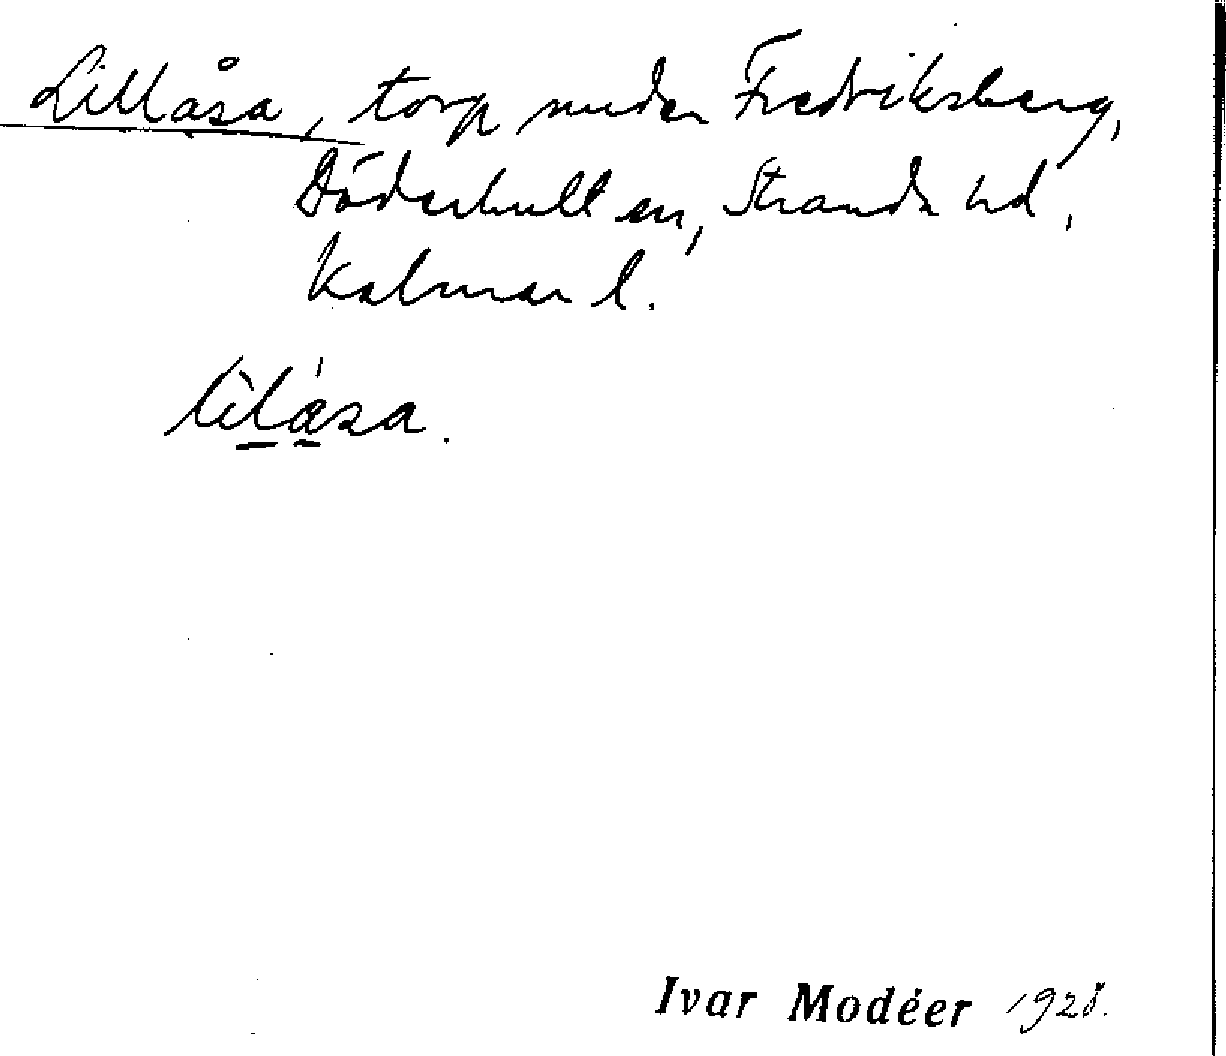 Lillåsa, torp under Fredriksberg,
Döderhult sn, Stranda hd,
Kalmar l.
lìlása.
Ivar Modéer 1928.